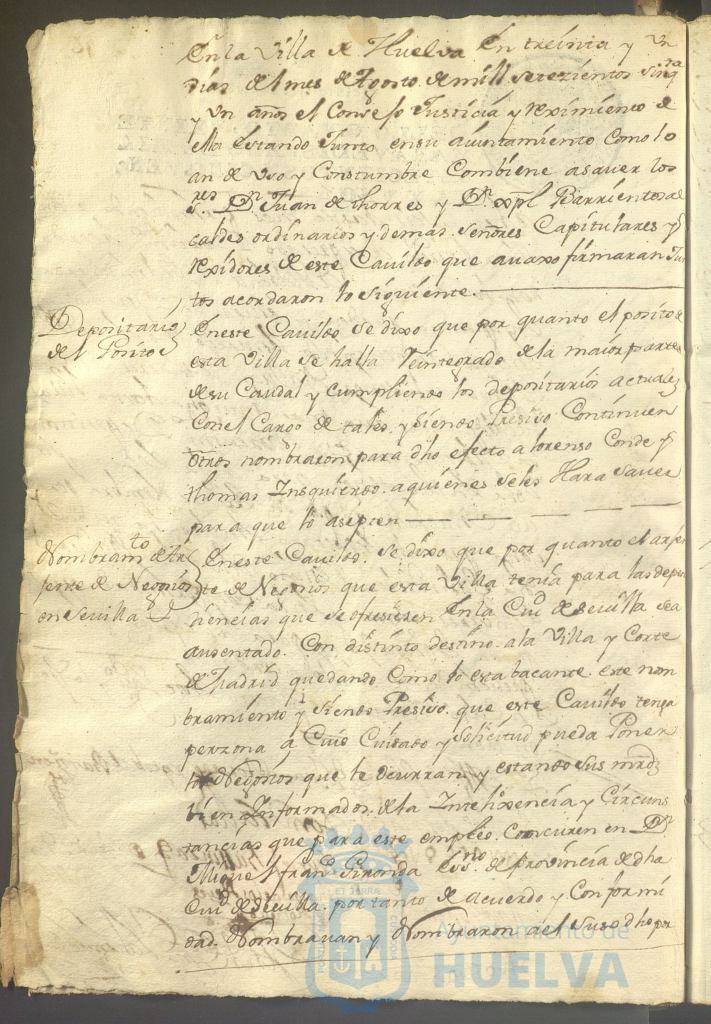 En la Villa de Huelva En treinta y un
dias del mes de Agosto de mill setezientos sinqta
y un años el Consejo Justicia y reximiento de
ella estando Junto en su aiuntamiento como lo
an de Uso y Constumbre Combiene asaver los
Sres Dn Juan de thorres y Dn xpl Barrientos al
caldes ordinarios y demas señores Capitulares y
rexidores de este Cavildo que avaxo firmaran Jun
tos acordaron lo siguiente.
Depositarios
del Posito
En este Cavildo se dixo que por quanto el posito de
esta Villa se halla reintegrado de la maior parte
de su Caudal y cumpliendo los depositarios actuales
con el Cargo de tales, y siendo Presiso Continuen
otros nombraron para dho efecto a lorenso Conde y
thomas Insquierdo. a quienes se les Hara saver
para que lo asepten
Nombramto de Ax
jente de Negosios
en Sevilla
En este Cavildo. se dixo que por quanto el axjen
te de Negosios que esta Villa tenia para las depen
diencias que se ofresiesen En la Ciud de sevilla se a
ausentado. Con distinto destino. a la Villa y Corte
de Madrid quedando Como lo esta bacante este nom
bramiento y siendo Presiso. que este Cavildo tenga
perzona á Cuio Cuidado y solisitud pueda Poner
los Negosios que le ocurran y estando sus mrds
bien Informados. de la Intelixencia y Circuns
tancias que para este empleo. Concuren en Dn
Miguel fran Gironda Essno de Provincia de dha
Ciud de sevilla. por tanto de acuerdo y Conformi
dad. Nombravan y Nombraron a el suso dho por
Ayuntamiento de
HUELVA